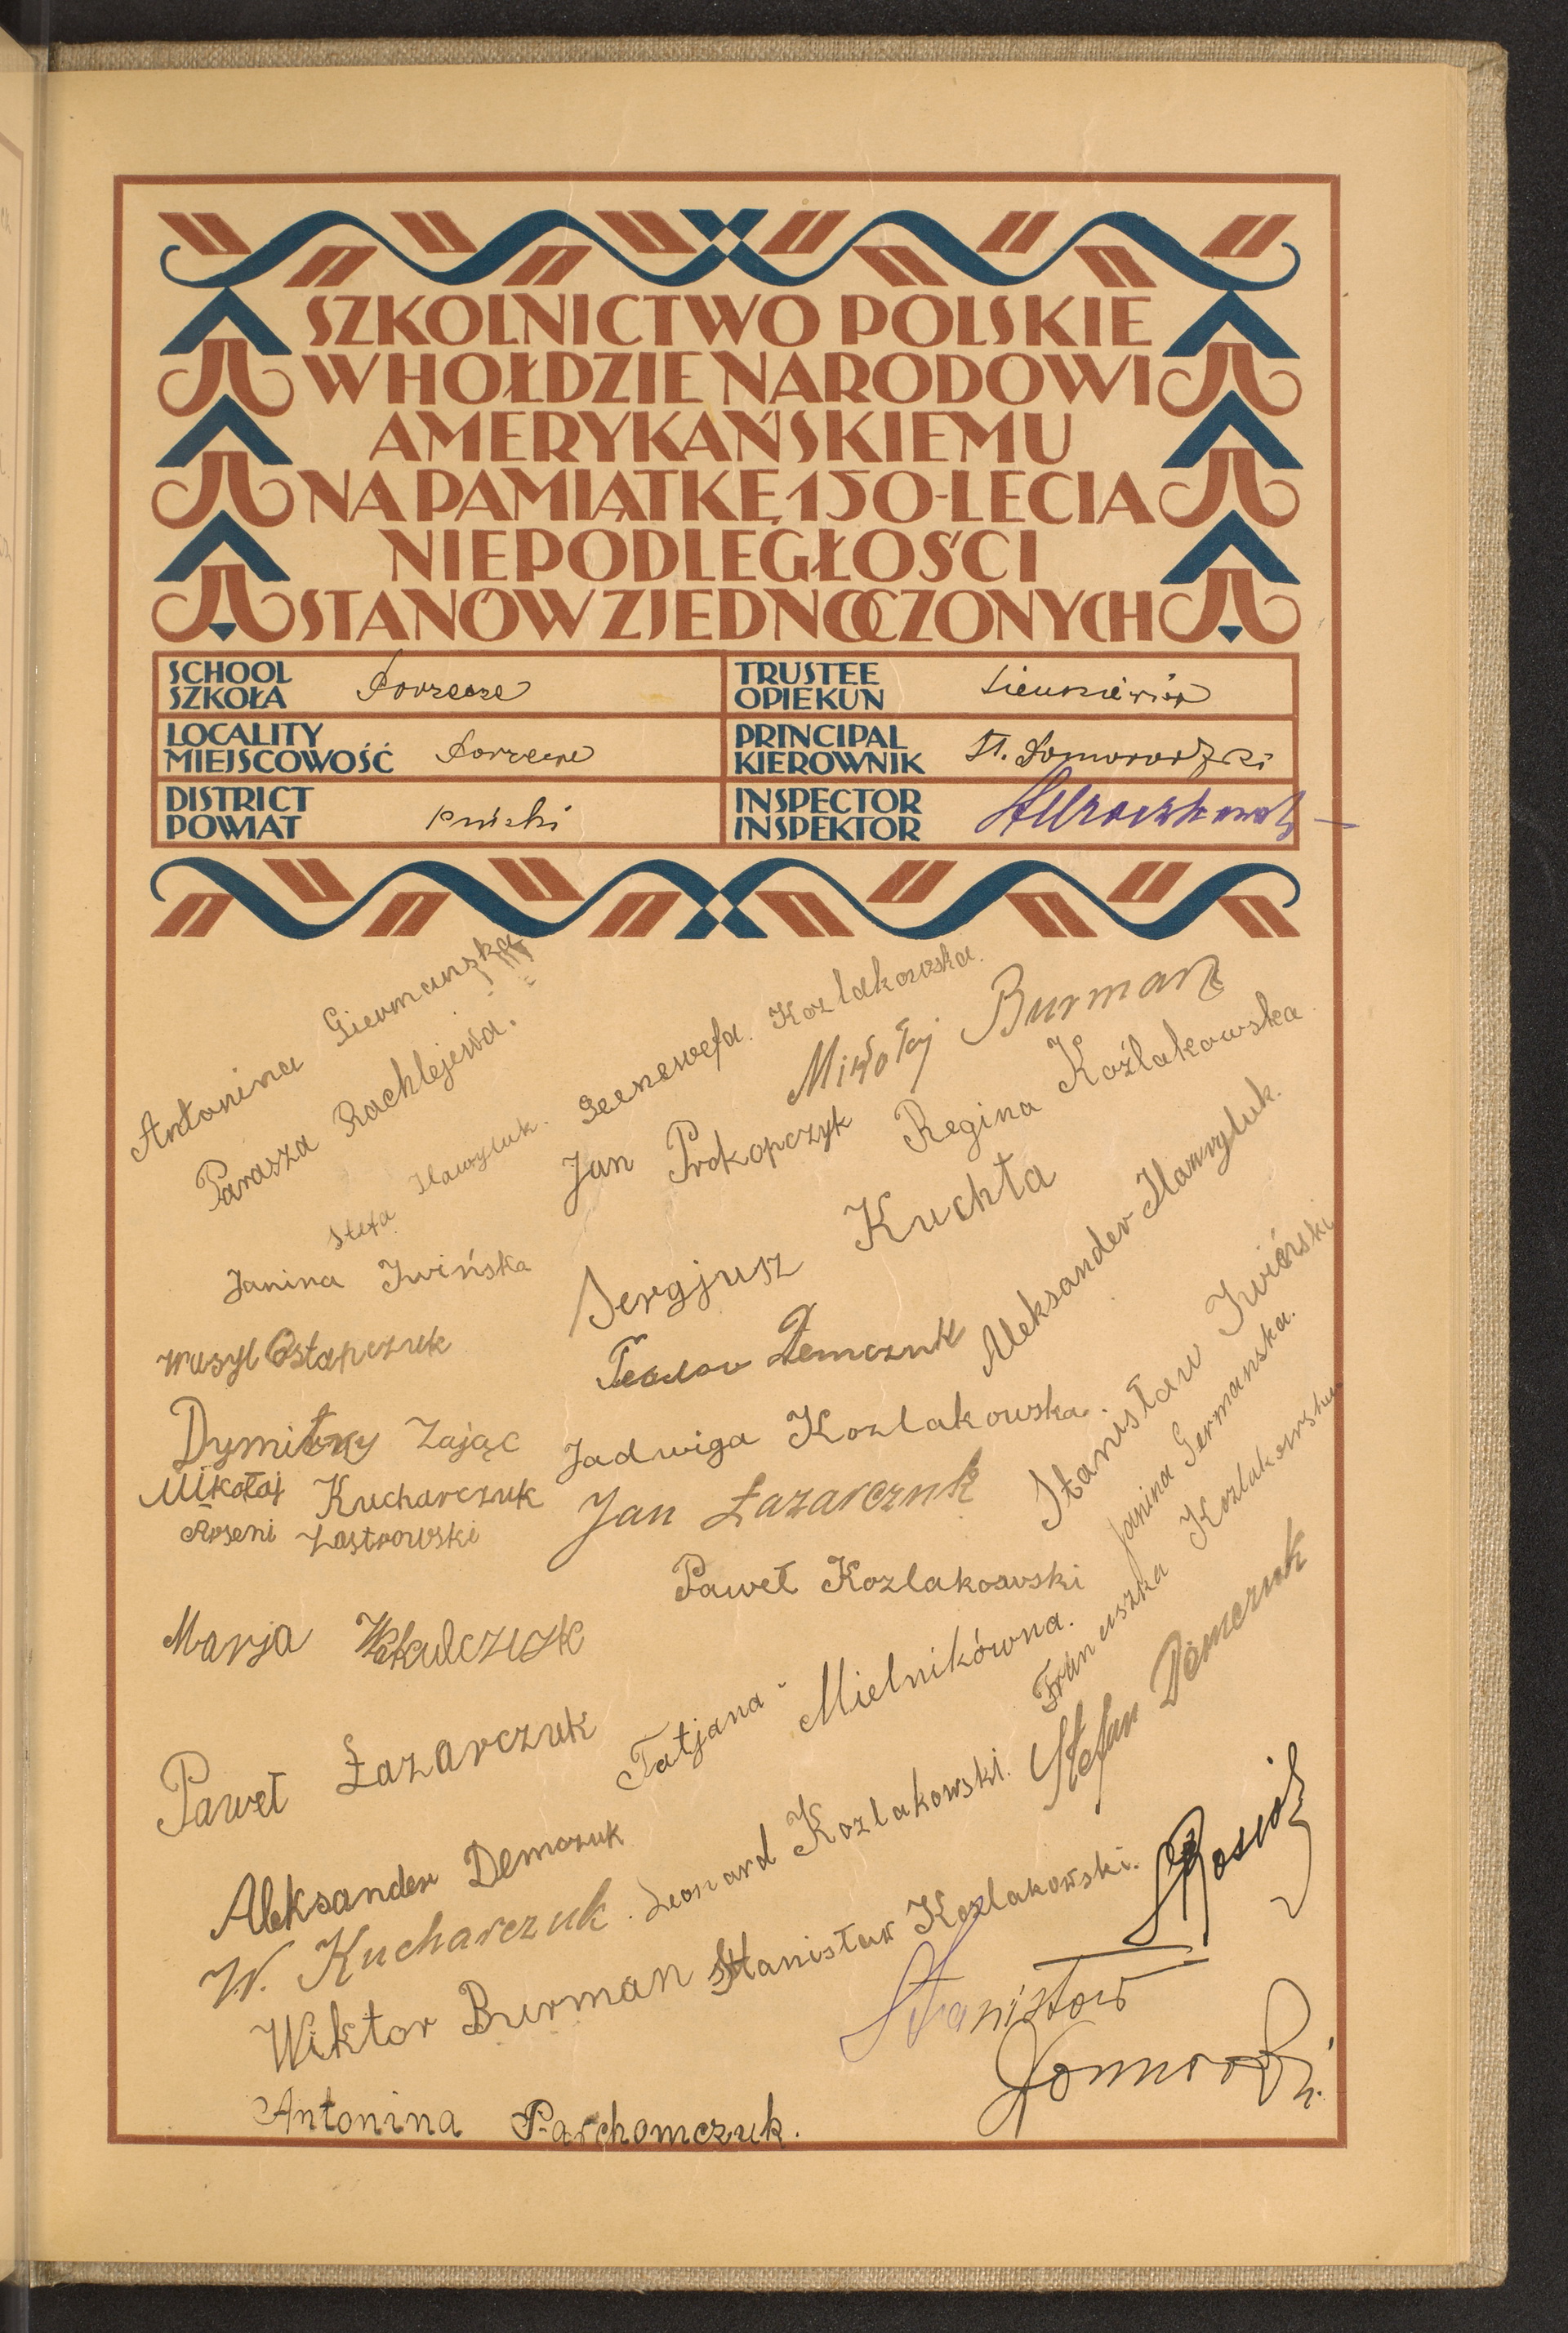 SZKOLNICTWO POLSKIE
W HOŁDZIE NARODOWI
AMERYKAŃSKIEMU
NA PAMIĄTKĘ 150-LECIA
NIEPODLEGŁOŚCI
STANÓW ZJEDNOCZONYCH
SCHOOL
SZKOŁA Porzecze
TRUSTEE
OPIEKUN
LOCALITY
MIEJSCOWOŚĆ Porzecze
PRINCIPAL
KIEROWNIK St.
DISTRICT
POWIAT Piński
INSPECTOR
INSPEKTOR
Antonina Giermanska
Parasza Rachlejewa.
Genewefa. Kozlakowska.
Mikołaj Burman
Stefa Hawryluk.
Jan Prokopczyk
Regina Koźlakowska
Janina Iwińska
Sergjusz Kuchta
Aleksander Hawryluk.
Wasyl Ostapczuk
Teodor Demczuk
Stanisław Iwiński
Dymitry Zając
Jadwiga Kozlakowska.
Janina Germanska.
Mikołaj Kucharczuk
Arseni Zastrowski
Jan Łazarczuk
Franciszka Kozlakowska
Paweł Kozlakowski
Marja
Stefan Demczuk
Tatjana Mielnikówna.
Paweł Łazarczuk
Aleksander Demczuk
Leonard Kozlakowski.
W. Kucharczuk
Stanisław Kozlakowski.
Wiktor Burman
Stanisław
Antonina Parchomczuk.